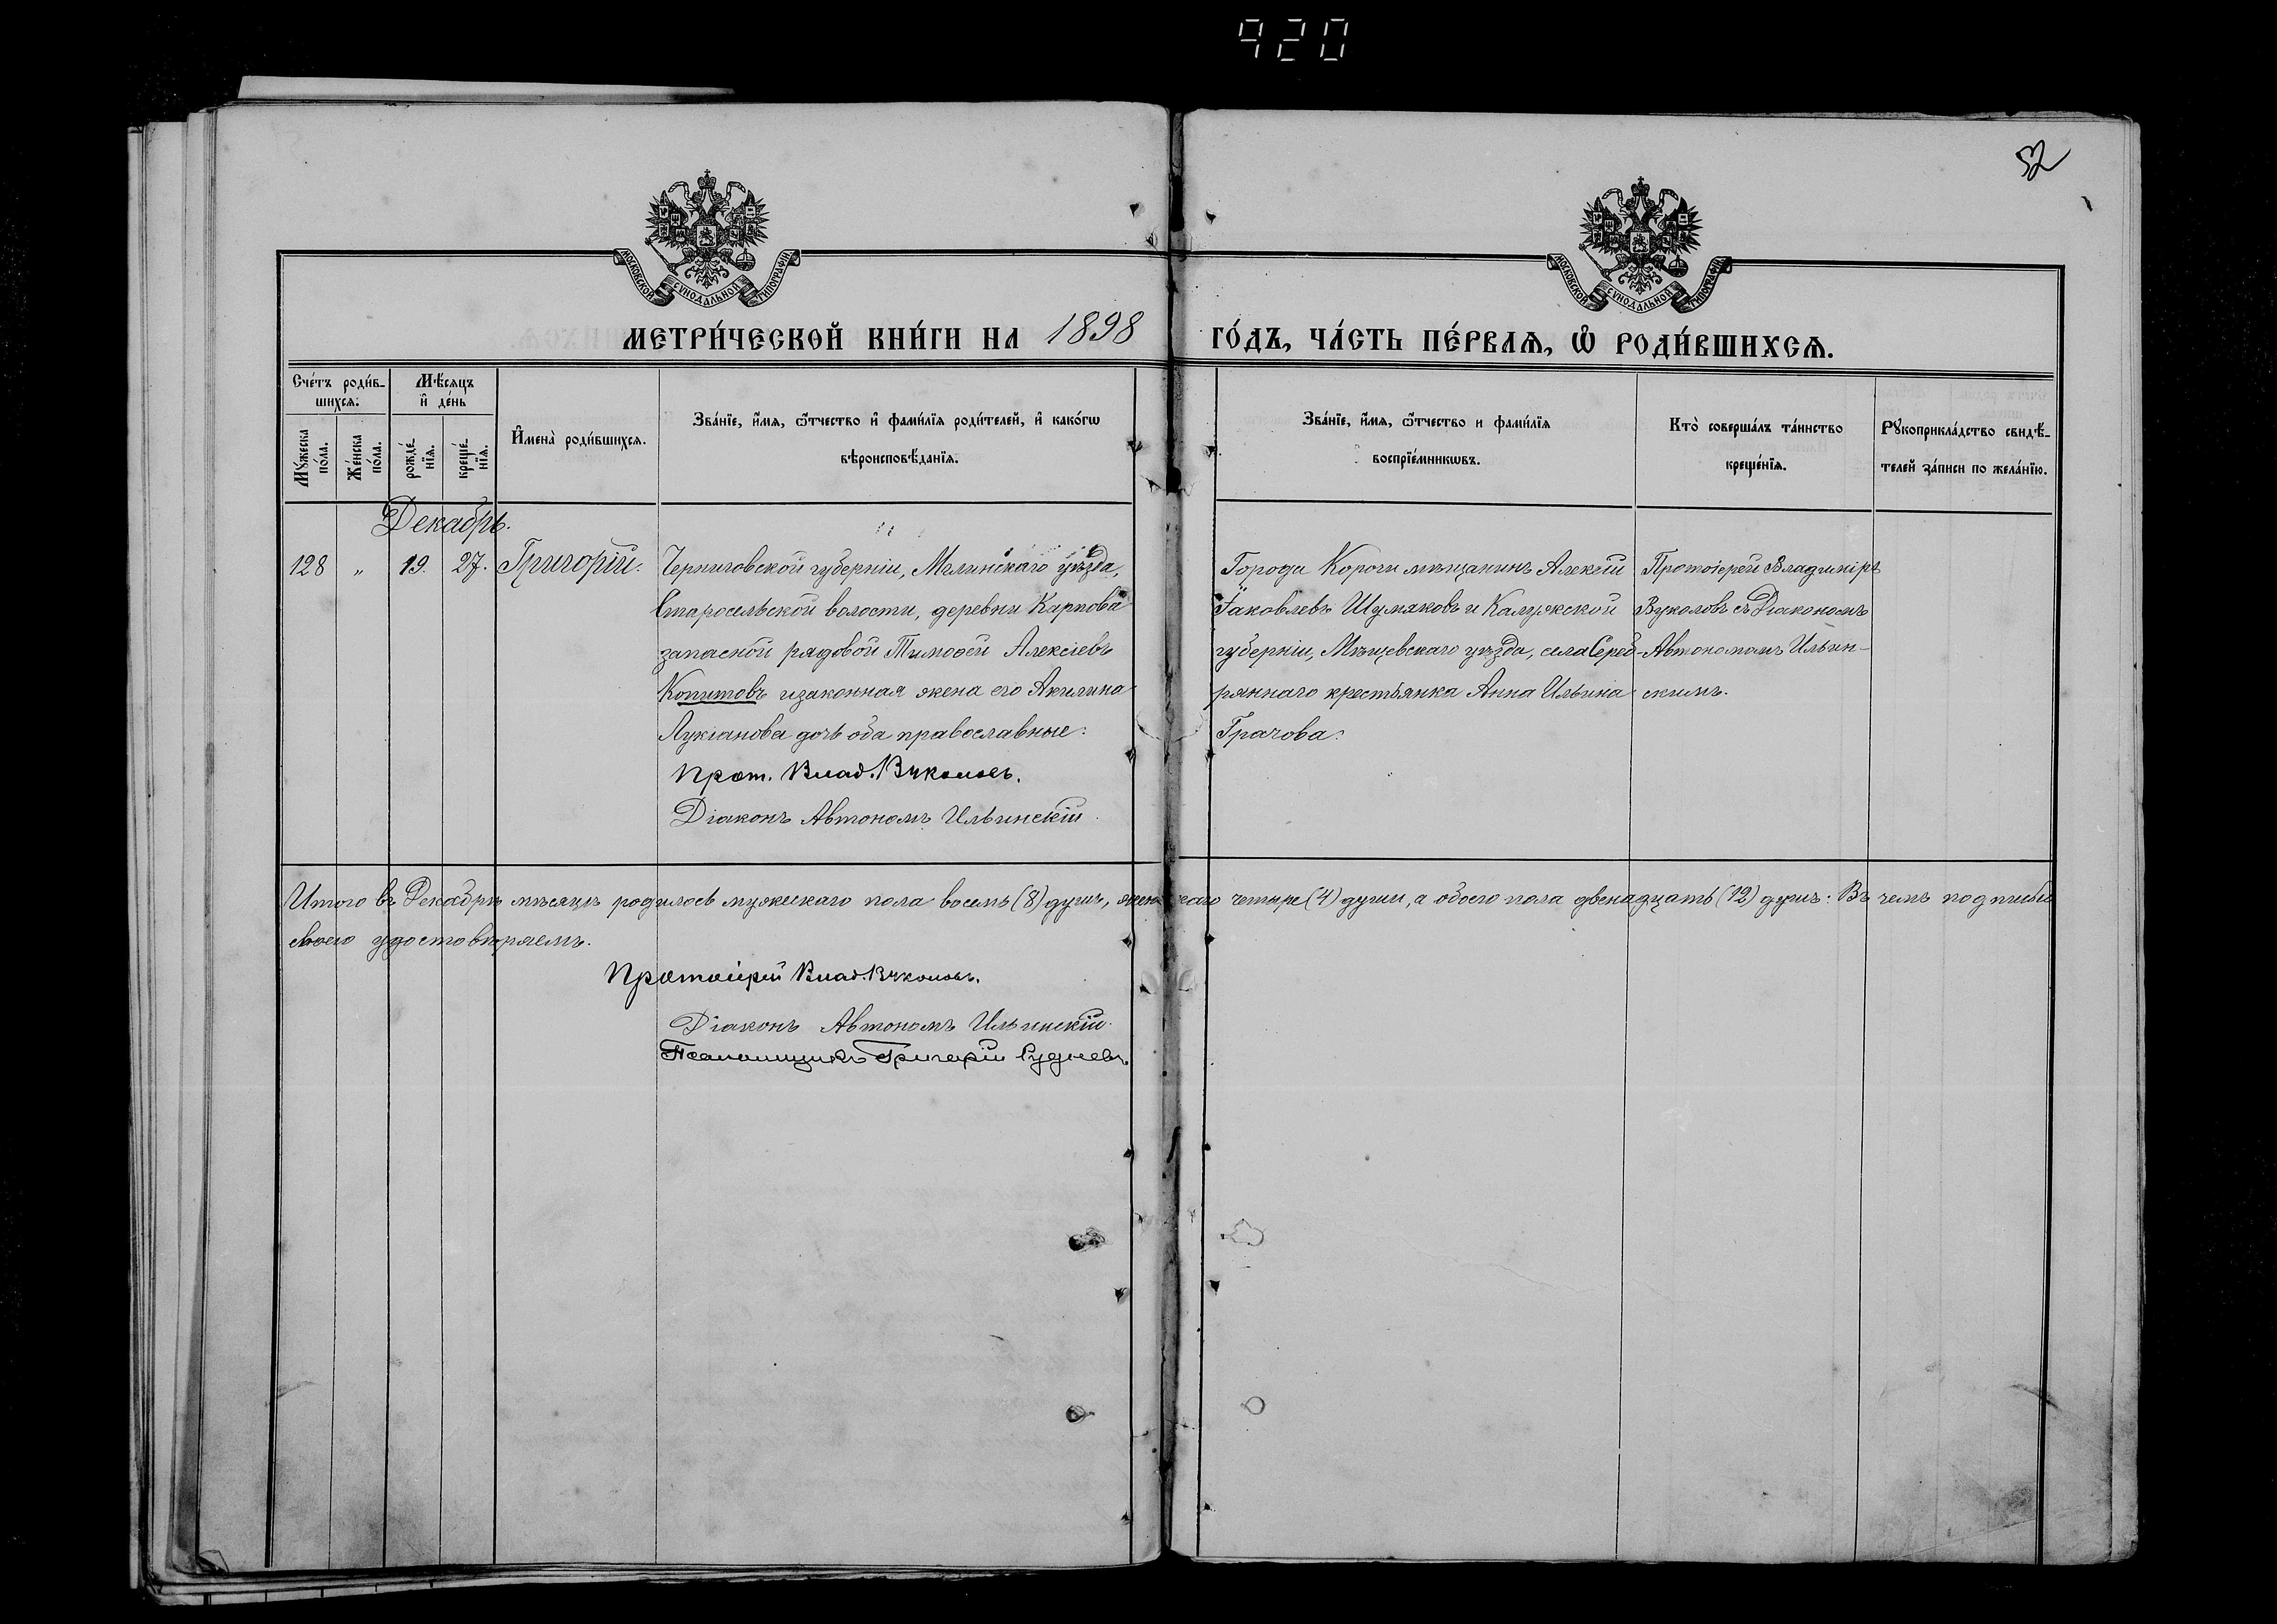 920
52
МОСКОВСКОЙ СУНОДАЛЬНОЙ ТИПОГРАФІИ
МОСКОВСКОЙ СУНОДАЛЬНОЙ ТИПОГРАФІИ
МЕТРИ́ЧЕСКОЙ КНИ́ГИ НА 1898 ГО́ДЪ, ЧА́СТЬ ПЕ́РВАѦ, Ѡ РОДИ́ВШИХСѦ.
Сче́тъ роди́в-
шихсѧ:
Мѣ́сѧцъ
и де́нь
Му́жеска
по́ла.
Же́нска
по́ла.
рожде́-
нїѧ.
креще́-
нїѧ.
Имена̀ роди́вшихсѧ.
Зва́нїе, и́мѧ, ѻ҆́тчество и фами́лїѧ роди́телей, и како́гѡ
вѣроисповѣ́данїѧ.
Зва́нїе, и́мѧ, ѻ҆́тчество и фами́лїѧ
воспрїе́мникѡвъ.
Кто̀ соверша́лъ та́инство
креще́нїѧ.
Рꙋкоприкла́дство свидѣ́-
телей за́писи по жела́нїю.
Декабрь.
128 „ 19. 27. Григорій.
Черниговской губерніи, Мглинскаго уѣзда,
Старосельской волости, деревни Карпова
запасной рядовой Тимоѳей Алексіевъ
Копитовъ и законная жена его Акилина
Лукіанова дочь оба православные.
Прот. Влад. Вуколовъ.
Діаконъ Автономъ Ильинскій
Города Корочи мѣщанинъ Алексій
Іаковлевъ Шумяковъ и Калужской
губерніи, Мѣщевскаго уѣзда, села Сереб-
ряннаго крестьянка Анна Ильина
Грачова.
Протоіерей Владиміръ
Вуколовъ съ Діакономъ
Автономомъ Ильин-
скимъ.
Итого въ Декабрѣ мѣсяцѣ родилось мужескаго пола восемь (8) душъ, женскаго четыре (4) души, а обоего пола двенадцать (12) душъ. Въ чемъ подписью
своею удостовѣряемъ.
Протоіерей Влад. Вуколовъ.
Діаконъ Автономъ Ильинскій.
Псаломщикъ Григорій Рудневъ